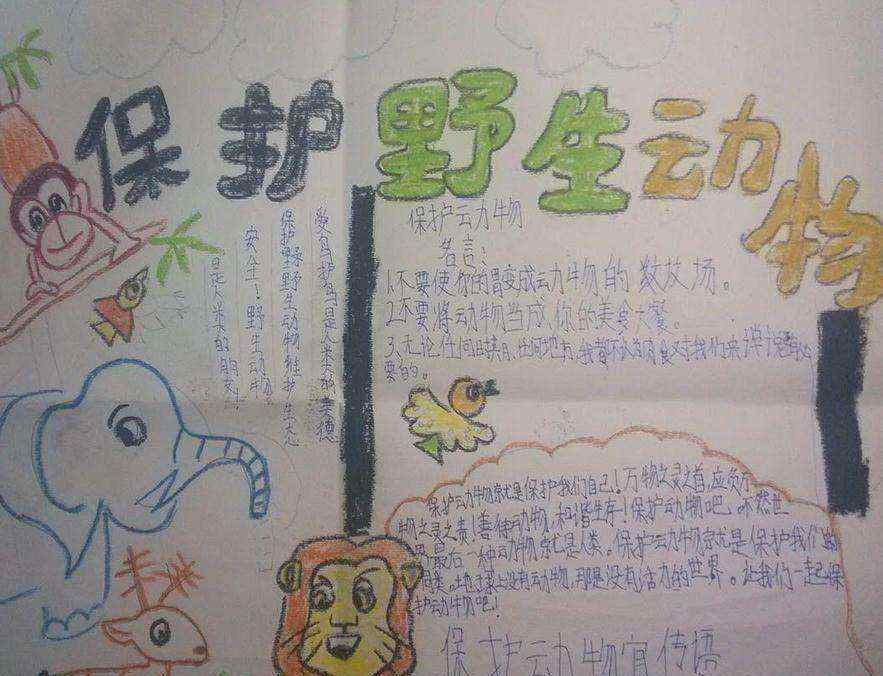 保护野生动物
爱鸟护鸟是人类的美德
保护野野生动物维护生态
安全！野生动物
是人类的朋友！
保护动物
名言：
1.不要使你的胃变成动物的数坟场。
2.不要将动物当成你的美食大餐。
3、无论任何日期,任何地方,我都不认为肉食对我们来说
要的。
保护动物就是保护我们自己！万物之灵之首,应负万
物之灵之责！善待动物,和谐生存！保护动物吧,不然世
最后一种动物就是人类。保护动物就是保护我们
类。地球上没有动物,那是没有活力的世界。让我们一起保
护动物吧！
保护动物宣传语